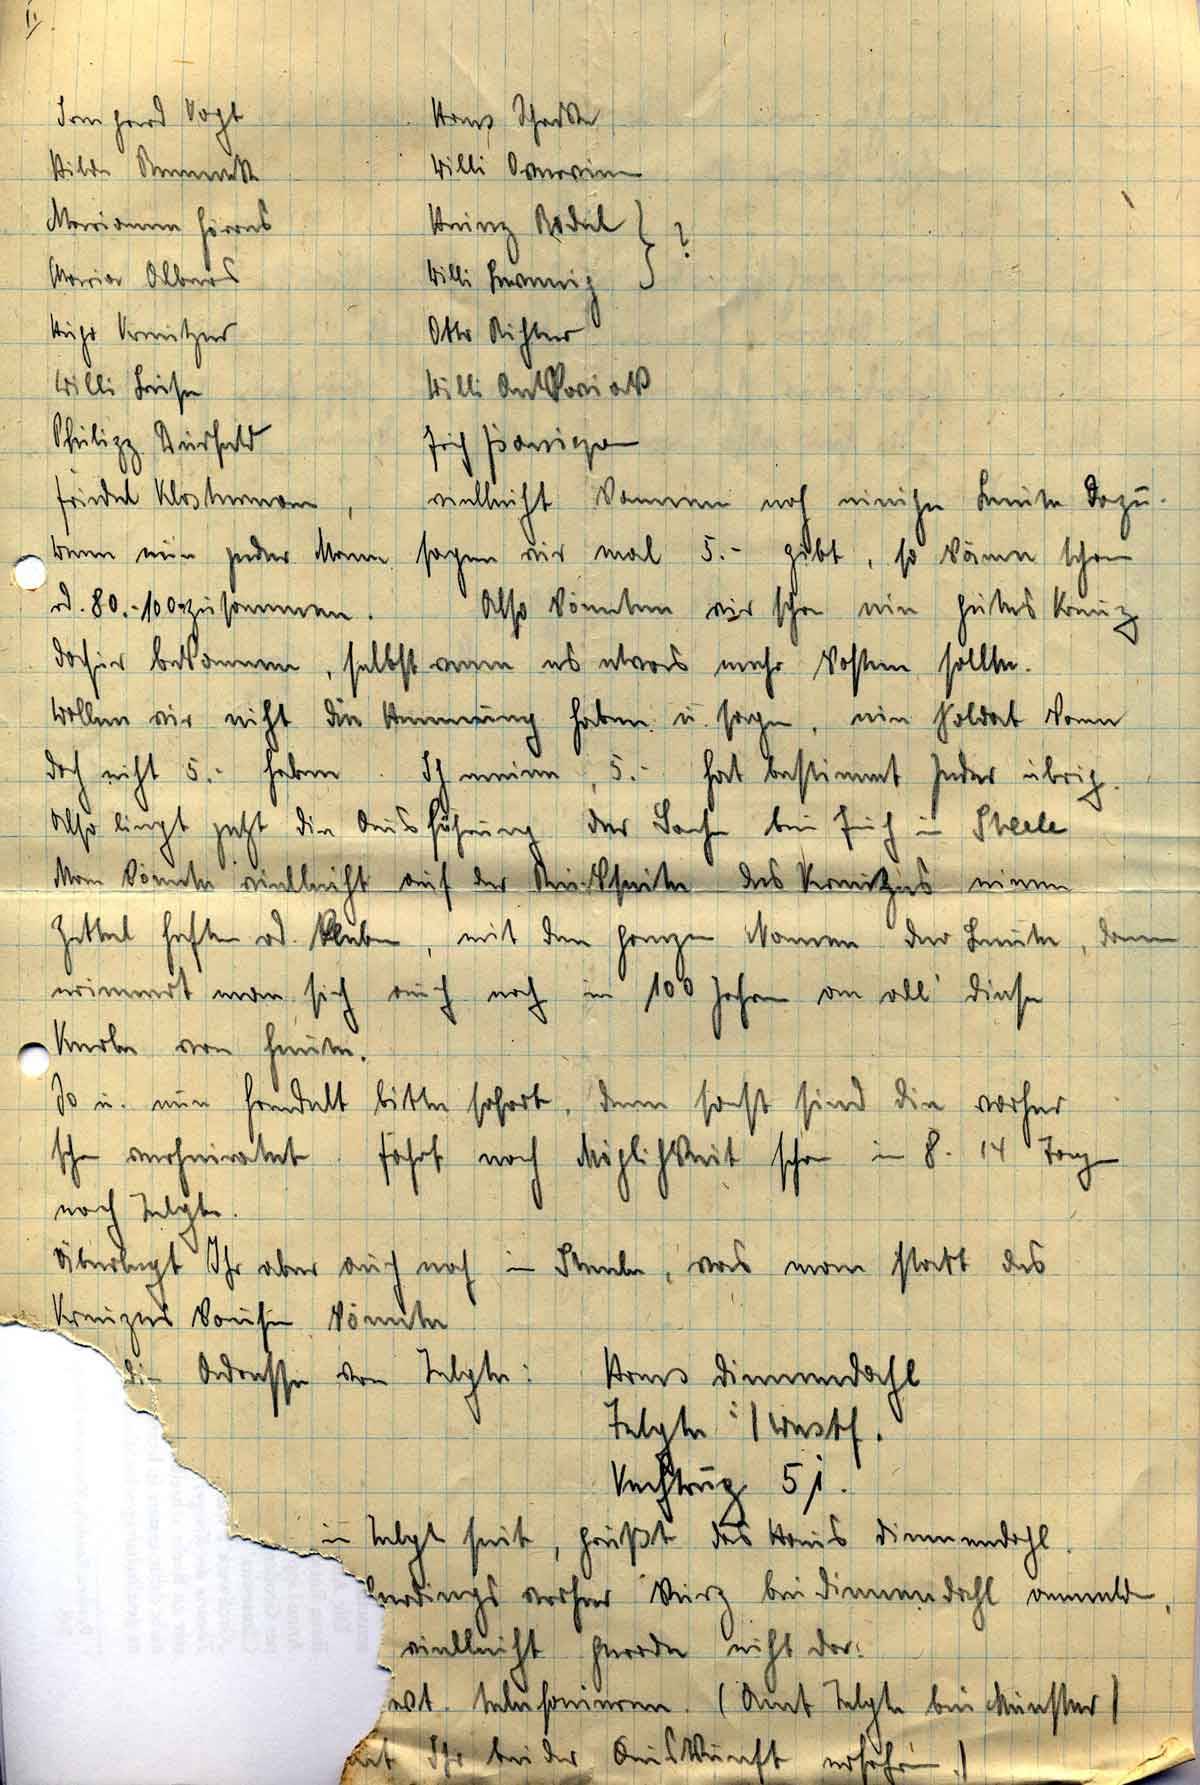 II
Irmgard Vogt Hans Schadte
Hilde Willi
Marianne Görres Heinz Rodel } ?
Maria Albers Willi Hennig
Hugo Kreutzer Otto Richter
Willi Heise Willi Antkoviak
Philipp Dürfeld Erich
Friedel Klostermann, vielleicht kommen noch einige Leute dazu.
Wenn nun jeder Mann sagen wir mal 5.- gibt, so käme schon
rd. 80.-100 zusammen. Also könnten wir schon ein gutes Kreuz
dafür bekommen, selbst wenn es etwas mehr kosten sollte.
Wollen wir nicht die Hemmung haben u. sagen, ein Soldat kann
doch nicht 5.- haben. Ich meine, 5.- hat bestimmt jeder übrig.
Also liegt jetzt die Ausführung der Sache bei Euch in Steele
Man könnte vielleicht auf der Rückseite des Kreuzes einen
Zettel heften od. kleben, mit den ganzen Namen der Leute, dann
erinnert man sich auch noch in 100 Jahren an all' diese
Kerle von heute.
So u. nun handelt bitte sofort, denn sonst sind die vorher
schon verheiratet. Fahrt nach Möglichkeit schon in 8. 14 Tagen
nach Telgte.
Überlegt Ihr aber auch noch in Steele, was man statt des
Kreuzes kaufen könnte
die Adresse von Telgte: Hans Dimmendahl
Telgte i/Westf.
51.
in Telgte seit, grüßt das Haus Dimmendahl.
erdings vorher kurz bei Dimmendahl anmelden,
vielleicht gerade nicht da.
evt. telefonieren. (Amt Telgte bei Münster)
Ihr bei der Auskunft erfahren.)